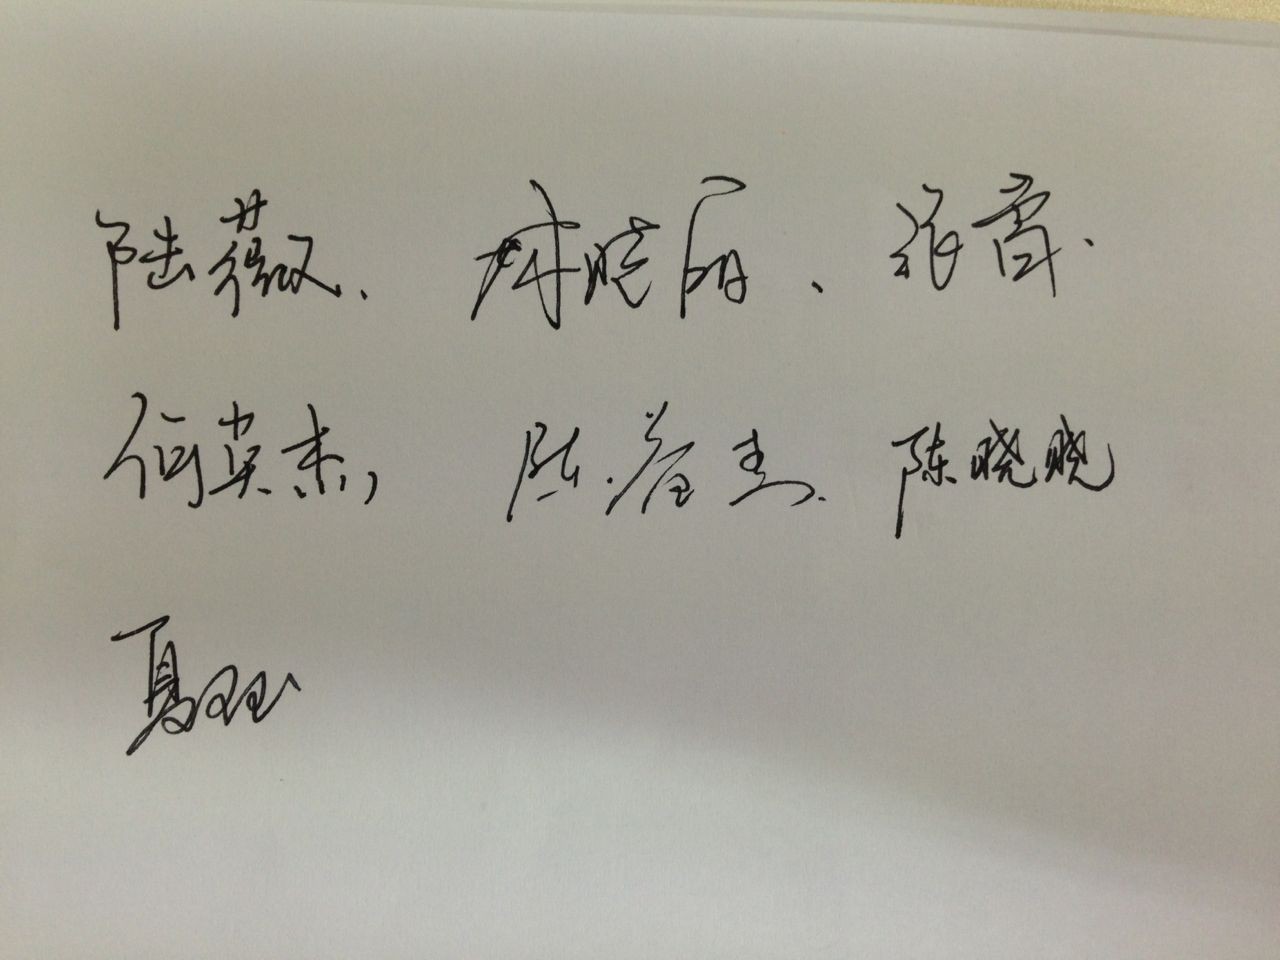 陆薇、林晓丽、张雷、
何英杰，陈春杰、陈晓晓
夏